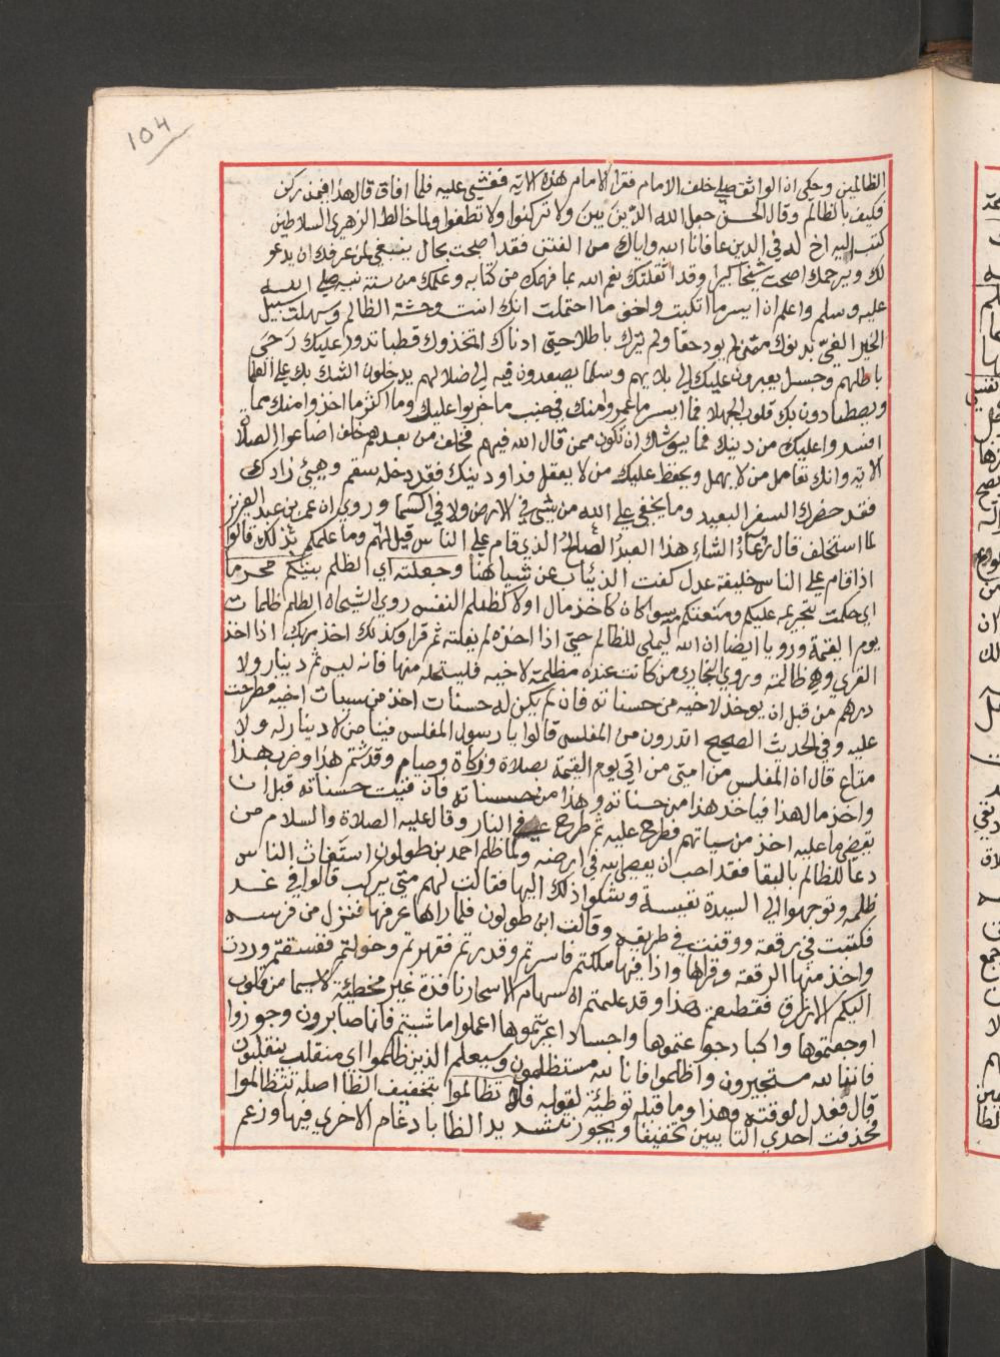 104
الظالمين وحكي ان الواثق صلي خلف الامام فقرا الامام هذه الاية فغشي عليه فلما افاق قال هذا فيمن ركن
فكيف بالظالم وقال الحسن جعل الله الدين بين ولا تركنوا ولا تطغوا ولما خالط الزهري السلاطين
كتب اليه اخ له في الدين عافانا الله واياك من الفتن فقد اصبحت بحال ينبغي لمن عرفك ان يدعو
لك ويرحمك اصبحت شيخا كبيرا وقد اثقلتك نعم الله بما فهمك من كتابه وعلمك من سنة نبيه صلي الله
عليه وسلم واعلم ان ايسر ما ارتكبت واخف ما احتملت انك انست وحشة الظالم وسهلت سبيل
الغي بدنوك ممن لم يودحقا ولم يترك باطلا حتي ادناك اتخذوك قطبا تدور عليك رحي
باطلهم وجسرا يعبرون عليك الي بلايهم وسلما يصعدون فيه الي ضلالهم يدخلون الشك بك علي العلما
ويصطادون بك قلوب الجهلا فما ايسر ما عمروا منك في جنب ما خربوا عليك وما اكثر ما اخذوا منك مما
افسدوا عليك من دينك فما يومنك ان تكون ممن قال الله فيهم فخلف من بعدهم خلف اضاعوا الصلاة
الاية وانك تعامل من لا يجهل ويحفظ عليك من لا يغفل فداو دينك فقد دخله سقم وهيئ زادك
فقد حضرك السفر البعيد وما يخفي علي الله من شئ في الارض ولا في السما وروي ان عمر بن عبد العزيز
لما استخلف قال رعاة الشاء من هذا العبد الصالح الذي قام علي الناس قيل لهم وما علمكم بذلك قالوا
اذا قام علي الناس خليفة عدل كفت الذئاب عن شياهنا وجعلته اي الظلم بينكم محرما
اي حكمت بتحريمه عليكم ومنعتكم سوا كان كاخذ مال او لا كظلم النفس روي الشيخان الظلم ظلمات
يوم القيمة ورويا ايضا ان الله ليملي للظالم حتي اذا اخذه لم يفلته ثم قرا وكذلك اخذ ربك اذا اخذ
القري وهي ظالمة وروي البخاري من كانت عنده مظلمة لاخيه فليستحله منها فانه ليس ثم دينار ولا
درهم من قبل ان يوخذ لاخيه من حسناته فان لم يكن له حسنات اخذ من سيات اخيه فطرحت
عليه وفي الحديث الصحيح اتدرون من المفلس قالوا يا رسول المفلس فينا من لا دينار له ولا
متاع قال ان المفلس من امتي من اتي يوم القيمة بصلاة وزكاة وصيام وقد شتم هذا وضرب هذا
واخذ مال هذا فياخذ هذا من حسناته وهذا من حسناته فان فنيت حسناته قبل ان
يقضي ما عليه اخذ من سياتهم فطرح عليه ثم طرح في النار وقال عليه الصلاة والسلام من
دعا للظالم بالبقا فقد احب ان يعصي الله في ارضه ولما ظلم احمد بن طولون استغاث الناس
ظلمه وتوجهوا الي السيدة نفيسة وشكوا ذلك اليها فقالت لهم متي يركب قالوا في غد
فكتبت في رقعة ووقفت في طريقه وقالت ابن طولون فلما راها عرفها فنزل من فرسه
واخذ منها الرقعة وقراها واذا فيها ملكتم فاسرتم وقدرتم فقهرتم وخولتم ففسقتم وردت
اليكم الارزاق فقطعتم هذا وقد علمتم ان سهام الاسحار نافذة غير مخطئة لا سيما من قلوب
اوجعتموها واكباد جوعتموها واجساد اعريتموها اعملوا ما شيتم فانا صابرون وجوزوا
فاننا لله مستجيرون واظلموا فانا لله مستظلمون وسيعلم الذين ظلموا اي منقلب ينقلبون
قال فعدل لوقته وهذا وما قبله توطئة لقوله فلا تظالموا بتخفيف الظا اصله تتظالموا
فحذفت احدي التايين تخفيفا ويجوز تشديد الظا بادغام الاخري فيها وزعم